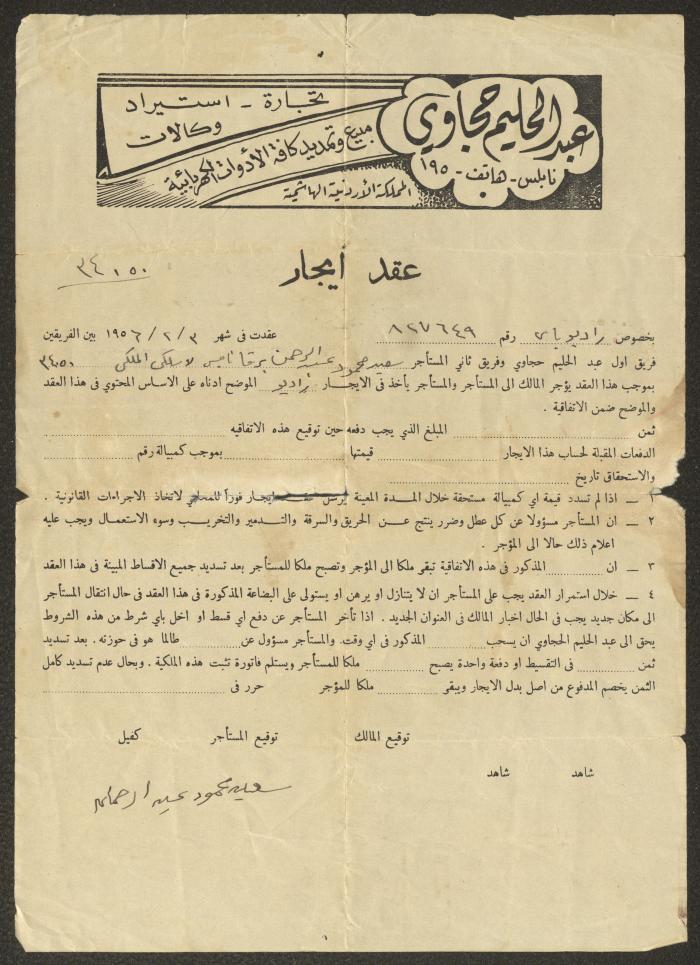 تجارة - استيراد
وكالات
مبيع وتمديد كافة الأدوات الكهربائية
المملكة الأردنية الهاشمية
عبد الحليم حجاوي
نابلس - هاتف - ١٩٥
عقد أيجار
٣٤١٥٠
بخصوص راديو باي رقم ٨٢٧٦٤٩ عقدت فى شهر ٣ / ٢ / ١٩٥٦ بين الفريقين
فريق اول عبد الحليم حجاوي وفريق ثاني المستأجر سعيد محمود عبد الرحمن برقا نابلس لاسلكي الملكي
بموجب هذا العقد يؤجر المالك الى المستأجر والمستأجر يأخذ فى الايجار راديو الموضح ادناه على الاساس المحتوي في هذا العقد
والموضح ضمن الاتفاقية .
ثمن المبلغ الذي يجب دفعه حين توقيع هذه الاتفاقيه
الدفعات المقبلة لحساب هذا الايجار قيمتها بموجب كمبيالة رقم
والاستحقاق تاريخ
١ — اذا لم تسدد قيمة اي كمبيالة مستحقة خلال المدة المعينة يرسل عقد الايجار فوراً للمحامي لاتخاذ الاجراءات القانونية .
٢ — ان المستأجر مسؤولا عن كل عطل وضرر ينتج عن الحريق والسرقة والتدمير والتخريب وسوء الاستعمال ويجب عليه
اعلام ذلك حالا الى المؤجر .
٣ — ان المذكور فى هذه الاتفاقية تبقى ملكا الى المؤجر وتصبح ملكا للمستأجر بعد تسديد جميع الاقساط المبينة فى هذا العقد
٤ — خلال استمرار العقد يجب على المستأجر ان لا يتنازل او يرهن او يستولى على البضاعة المذكورة فى هذا العقد فى حال انتقال المستأجر
الى مكان جديد يجب فى الحال اخبار المالك فى العنوان الجديد . اذا تأخر المستأجر عن دفع اي قسط او اخل باي شرط من هذه الشروط
يحق الى عبد الحليم الحجاوي ان يسحب المذكور فى اي وقت. والمستأجر مسؤول عن طالما هو فى حوزته . بعد تسديد
ثمن فى التقسيط او دفعة واحدة يصبح ملكا للمستأجر ويستلم فاتورة تثبت هذه الملكية . وبحال عدم تسديد كامل
الثمن يخصم المدفوع من اصل بدل الايجار ويبقى ملكا للمؤجر حرر فى
توقيع المالك توقيع المستأجر كفيل
شاهد شاهد
سعيد محمود عبد الرحمن